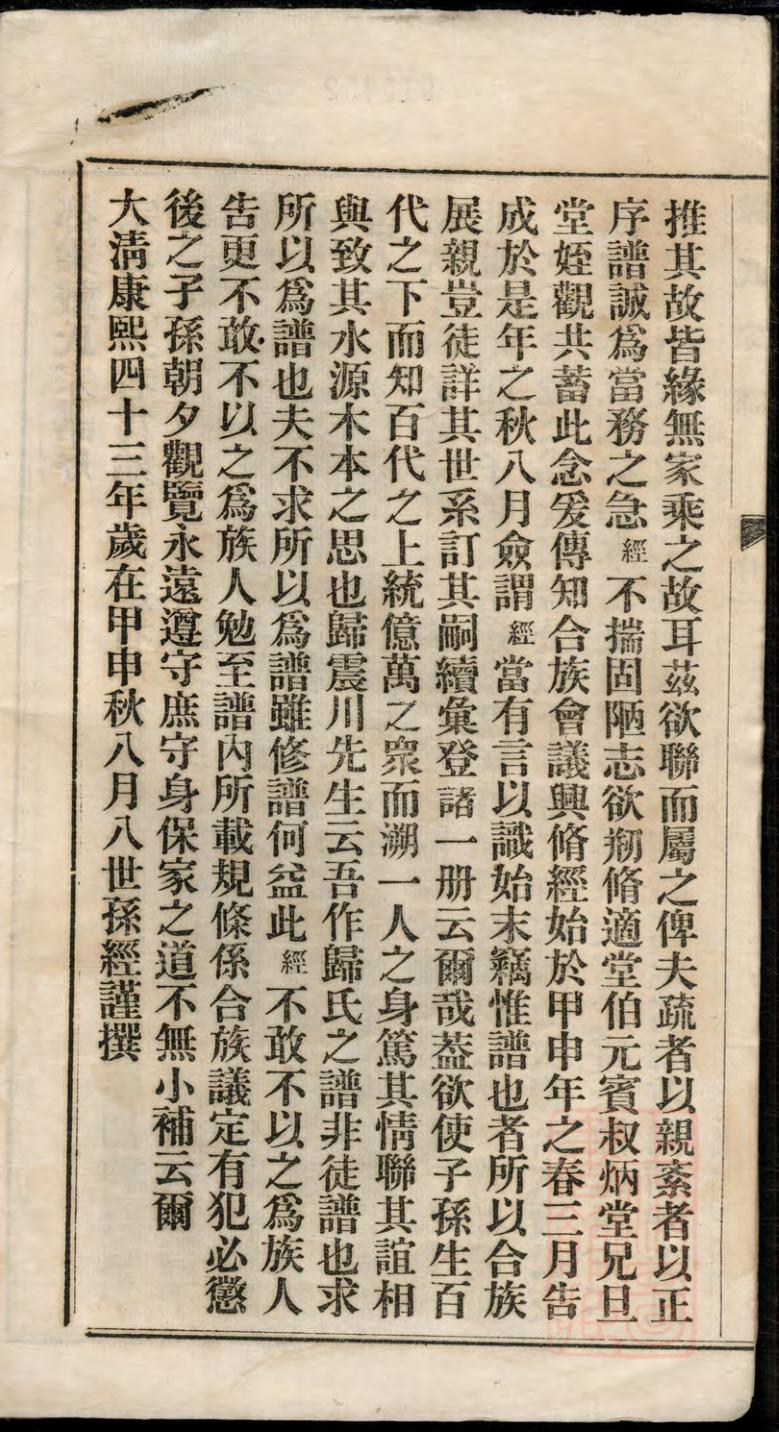 推其故皆緣無家乘之故耳茲欲聯而屬之俾夫疏者以親紊者以正
序譜誠爲當務之急經不揣固陋志欲剏脩適堂伯元賓叔炳堂兄旦
堂姪觀共蓄此念爰傳知合族會議興脩經始於甲申年之春三月告
成於是年之秋八月僉謂經當有言以識始末竊惟譜也者所以合族
展親豈徒詳其世系訂其嗣續彙登諸一册云爾哉葢欲使子孫生百
代之下而知百代之上統億萬之衆而溯一人之身篤其情聯其誼相
與致其水源木本之思也歸震川先生云吾作歸氏之譜非徒譜也求
所以爲譜也夫不求所以爲譜雖修譜何益此經不敢不以之爲族人
告更不敢不以之爲族人勉至譜內所載規條係合族議定有犯必懲
後之子孫朝夕觀覽永遠遵守庶守身保家之道不無小補云爾
大淸康熙四十三年歲在甲申秋八月八世孫經謹撰